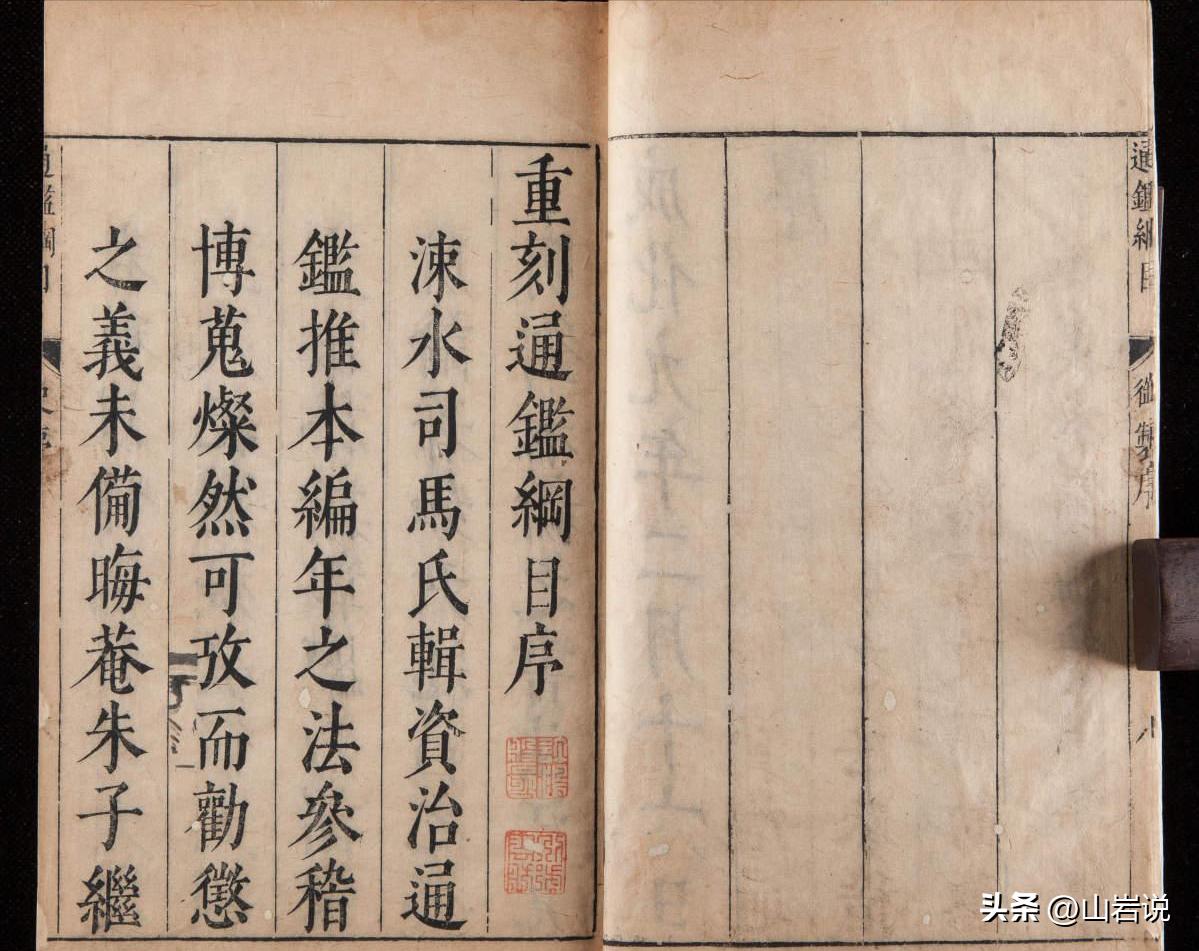 通鑑綱目 御製序
重刻通鑑綱目序
涑水司馬氏輯資治通
鑑推本編年之法參稽
博蒐燦然可攷而勸懲
之義未備晦菴朱子繼
通鑑綱目
头条 @山岩说